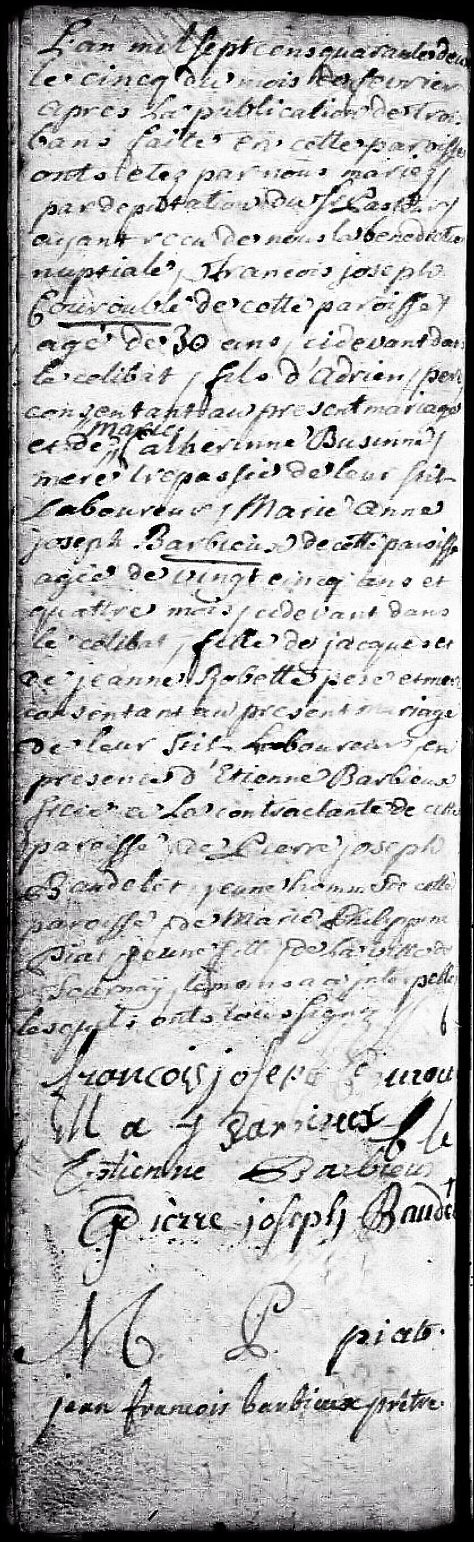 L'an mil sept cens quarante deux
le cinq du mois de fevrier
apres la publication de trois
bans faite en cette paroisse
onts etez par nous mariez
par deputation du Sr Pasteur
ayant recu de nous la benediction
nuptiale, francois joseph
Couroublé de cette paroisse
agé de 30 ans, cidevant dans
le celibat, fils d'Adrien, pere
consentant au present mariage
et de marie Catherinne Businne,
mere trepassée de leur stil
Laboureur, Marie Anne
joseph Barbieux de cette paroisse
agée de vingt cinq ans et
quattre mois, cidevant dans
le celibat, fille de jacques et
de jeanne Robette pere et mere
consentant au present mariage
de leur stil Laboureur, en
presence d'Etienne Barbieux
frere a la contractante de cette
paroisse, de Pierre joseph
Baudelet, jeune homme de cette
paroisse, de Marie Philippinne
Piat, jeune fille, de la ville de
Tournay, temoins a ce interpellé
lesquels onts tous signez
francois joseph Courou
M a j Barbieux
Estienne Barbieux
Pierre joseph Baudet
M. P. piat.
jean francois barbieux prêtre.